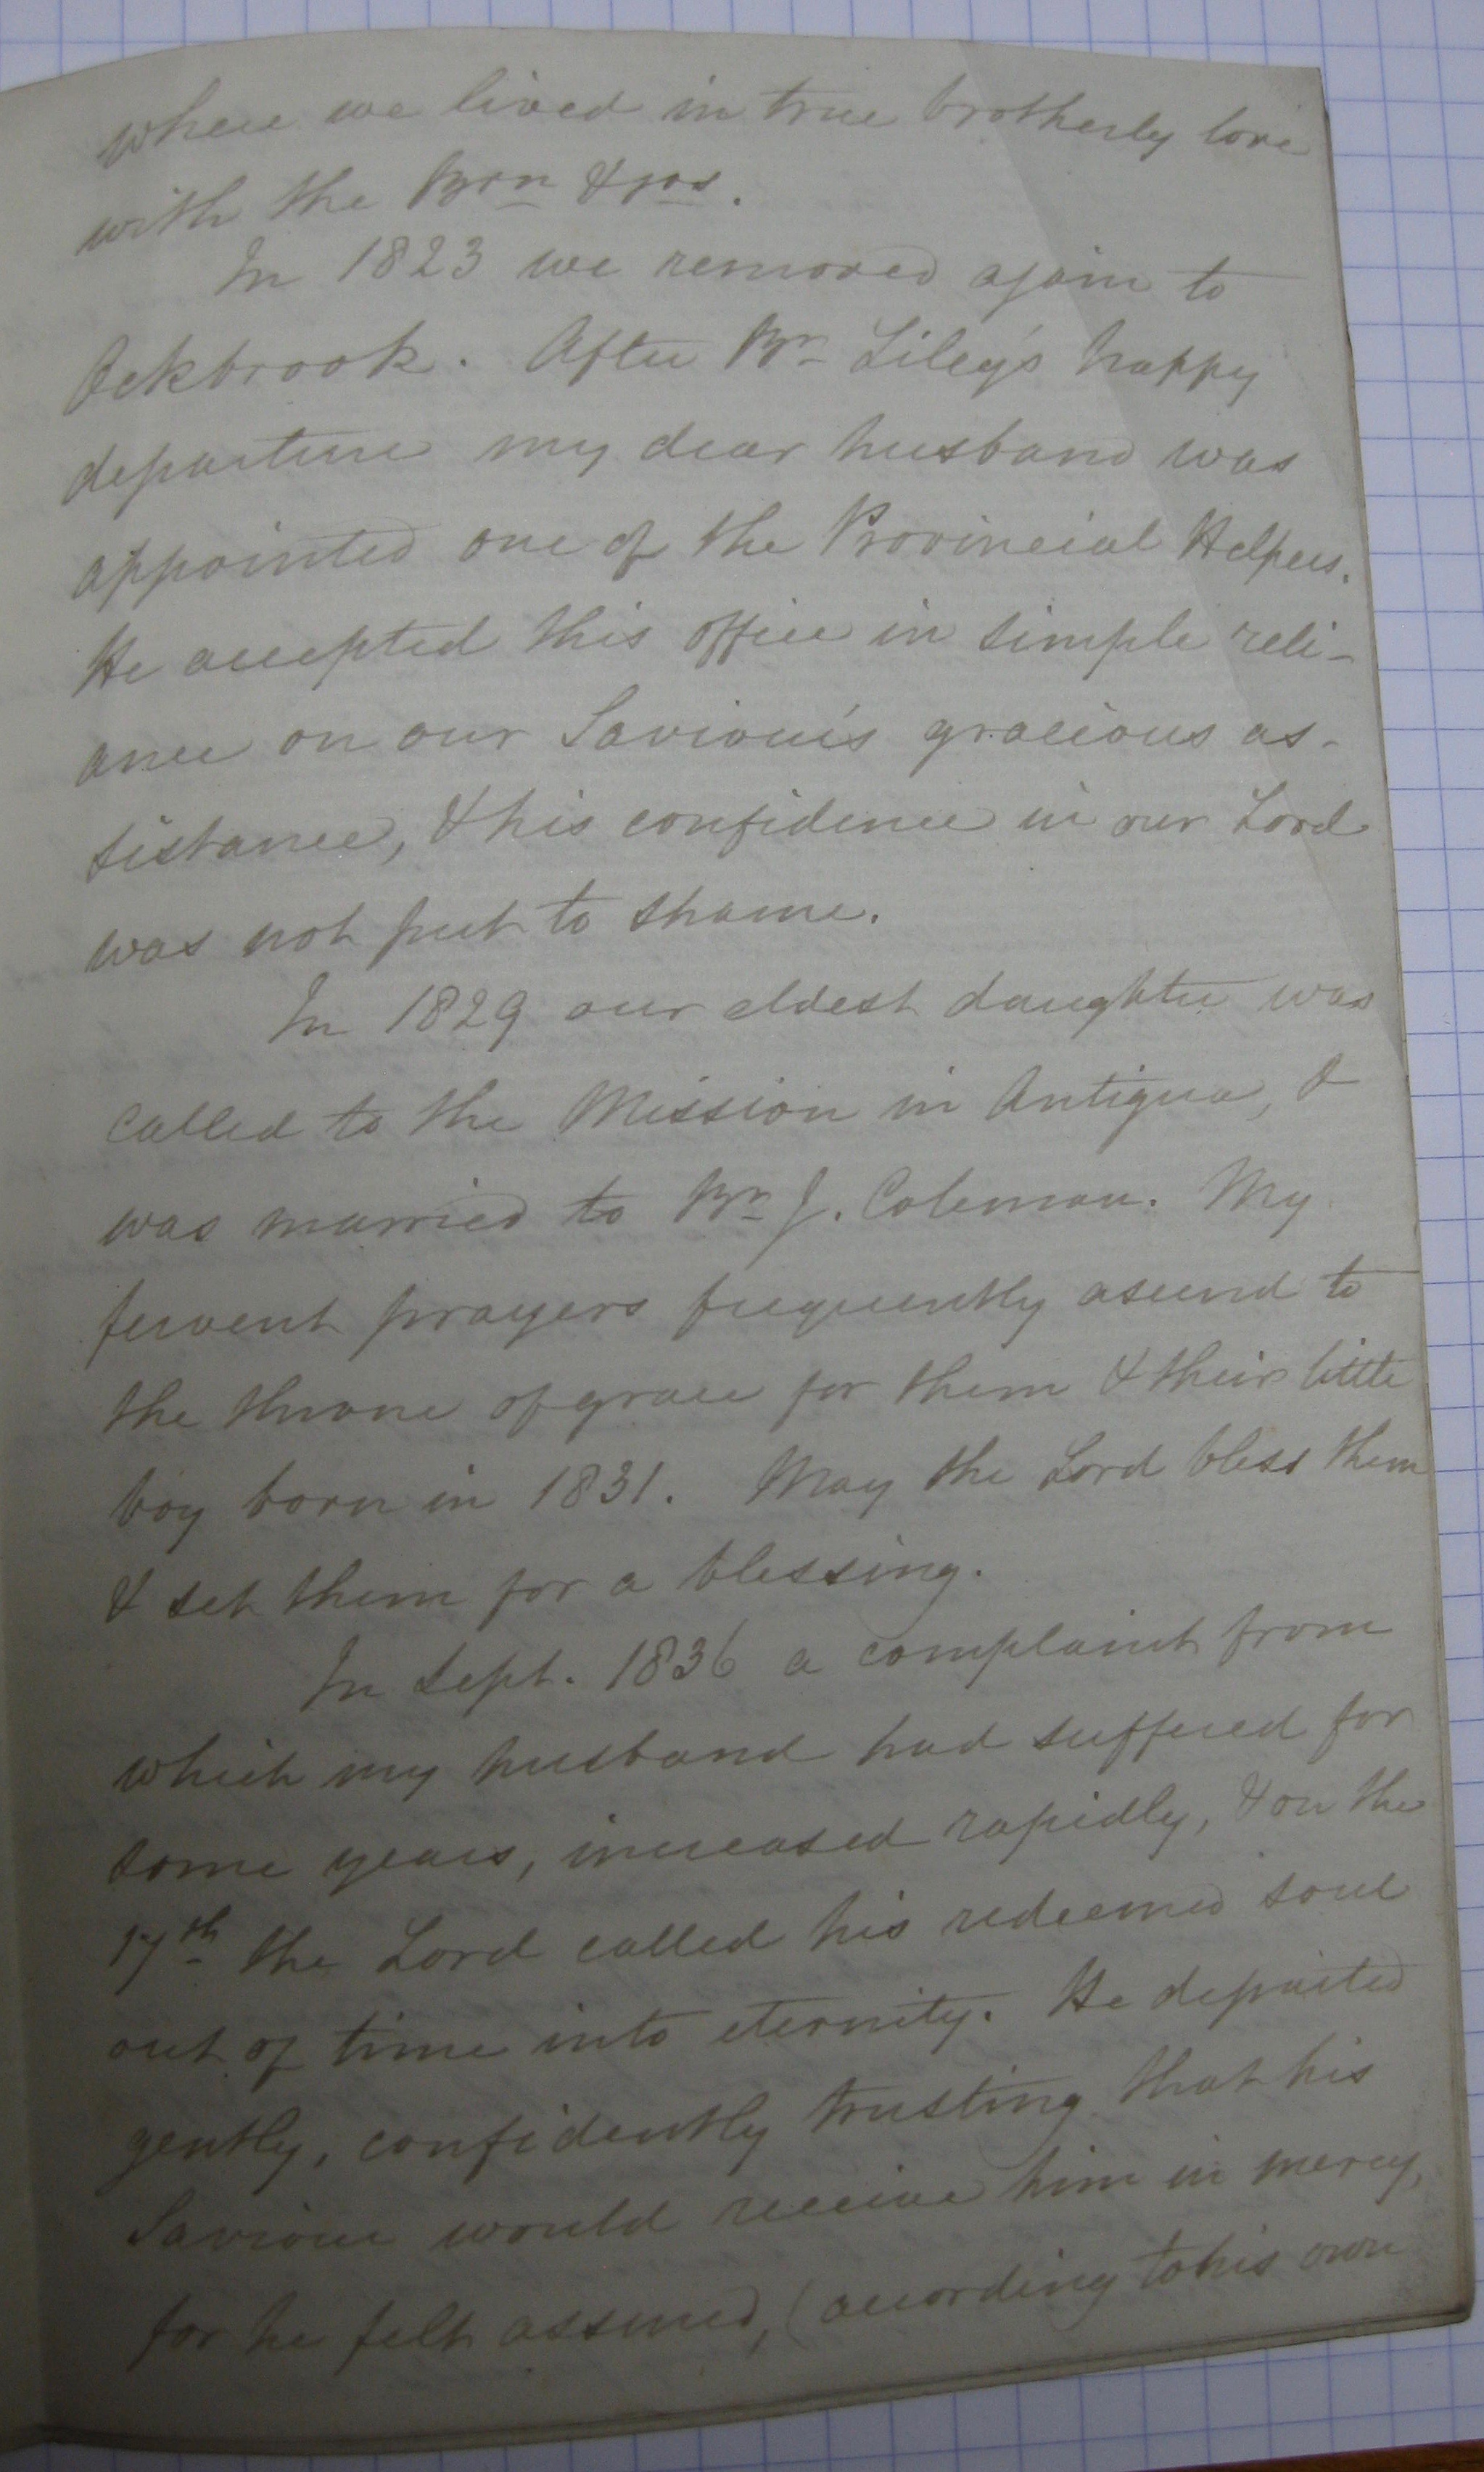 where we lived in true brotherly love
with the Brn & srs.
In 1823 we removed again to
Ockbrook. After Br Liley's happy
departure my dear husband was
appointed one of the Provincial Helpers.
He accepted this office in simple reli-
ance on our Saviour's gracious as-
sistance, & his confidence in our Lord
was not put to shame.
In 1829 our eldest daughter was
called to the Mission in Antigua, &
was married to Br J. Coleman. My
fervent prayers frequently ascend to
the throne of grace for them & their little
boy born in 1831. May the Lord bless them
& set them for a blessing.
In Sept. 1836 a complaint from
which my husband had suffered for
some years, increased rapidly, & on the
17th the Lord called his redeemed soul
out of time into eternity. He departed
gently, confidently trusting that his
Saviour would receive him in mercy,
for he felt assured, (according to his own